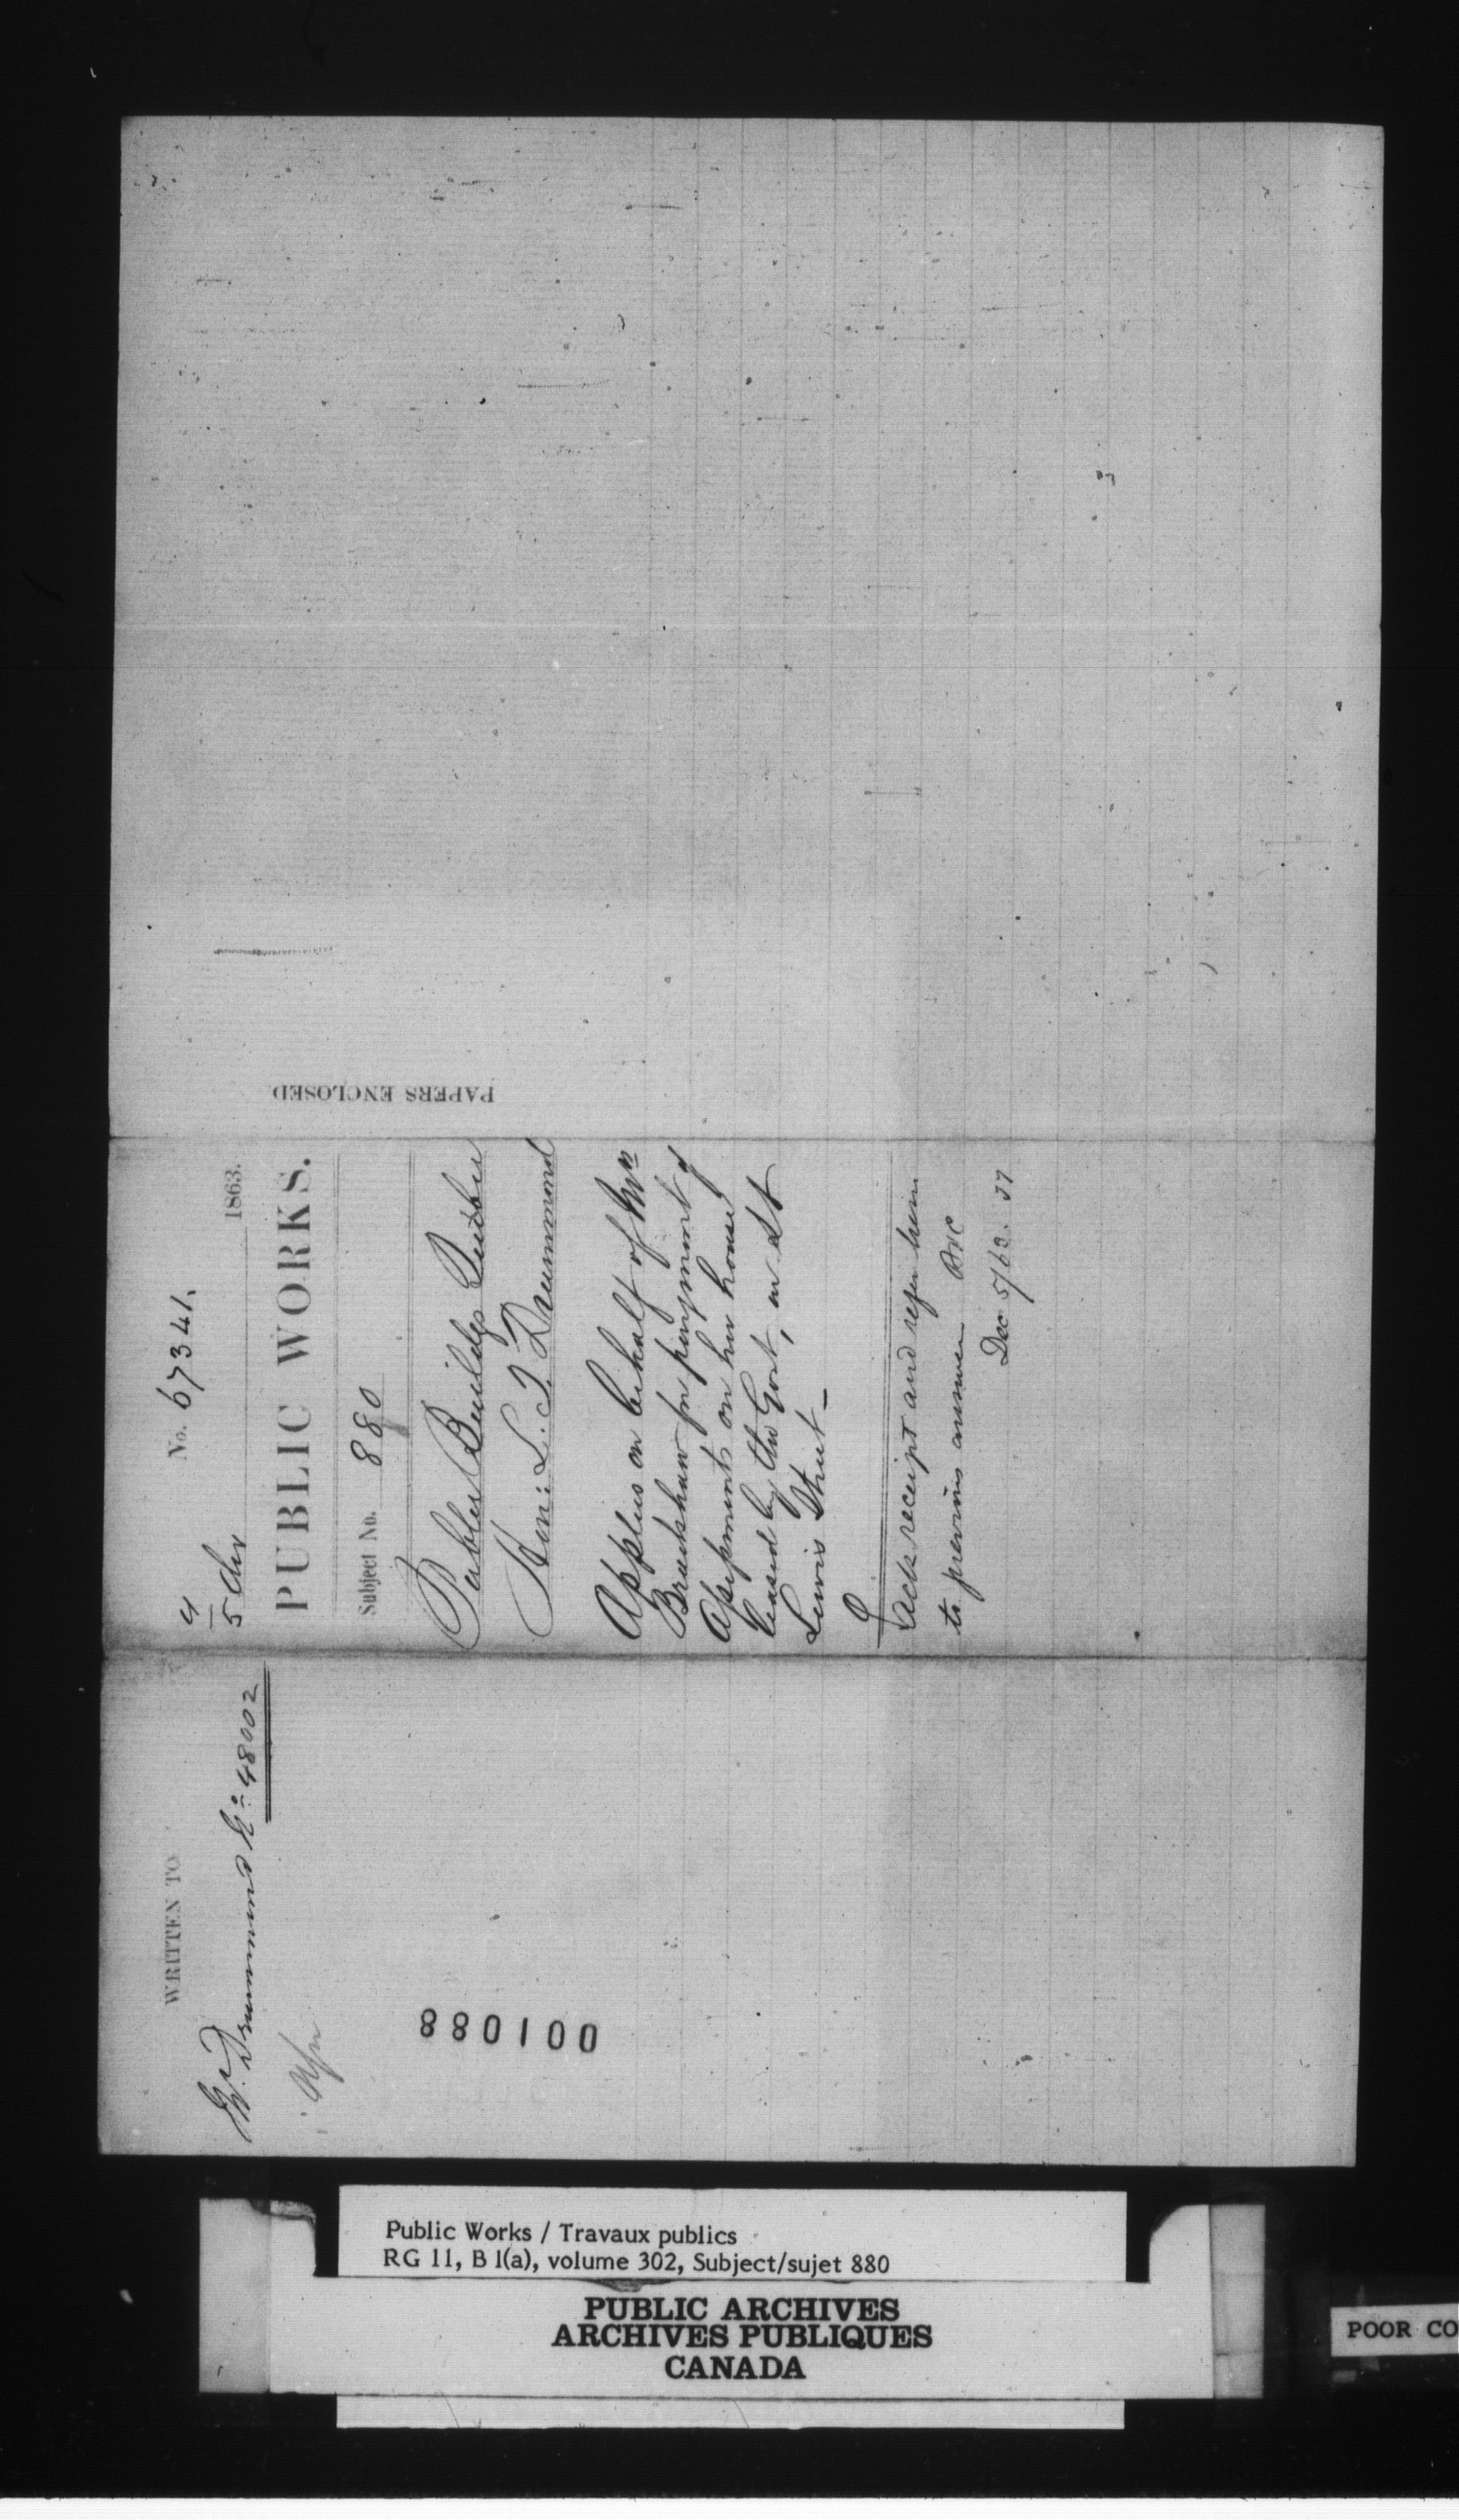 No. 67341.
4/5 Dec
1863.
PUBLIC WORKS.
Subject No. 880
Public Buildgs Quebec
Hon: L. T. Drummond
Applies on behalf of Mrs
Bradshaw for payment of
Assessments on her house
leased by the Govt, on St
Lewis Street_
Ack receipt and refer him
to previous answer
Dec 5/63.
PAPERS ENCLOSED
WRITTEN TO
Mr. Drummond No. 48002
880100
Public Works / Travaux publics
RG 11, B 1(a), volume 302, Subject/sujet 880
PUBLIC ARCHIVES
ARCHIVES PUBLIQUES
CANADA
POOR CO